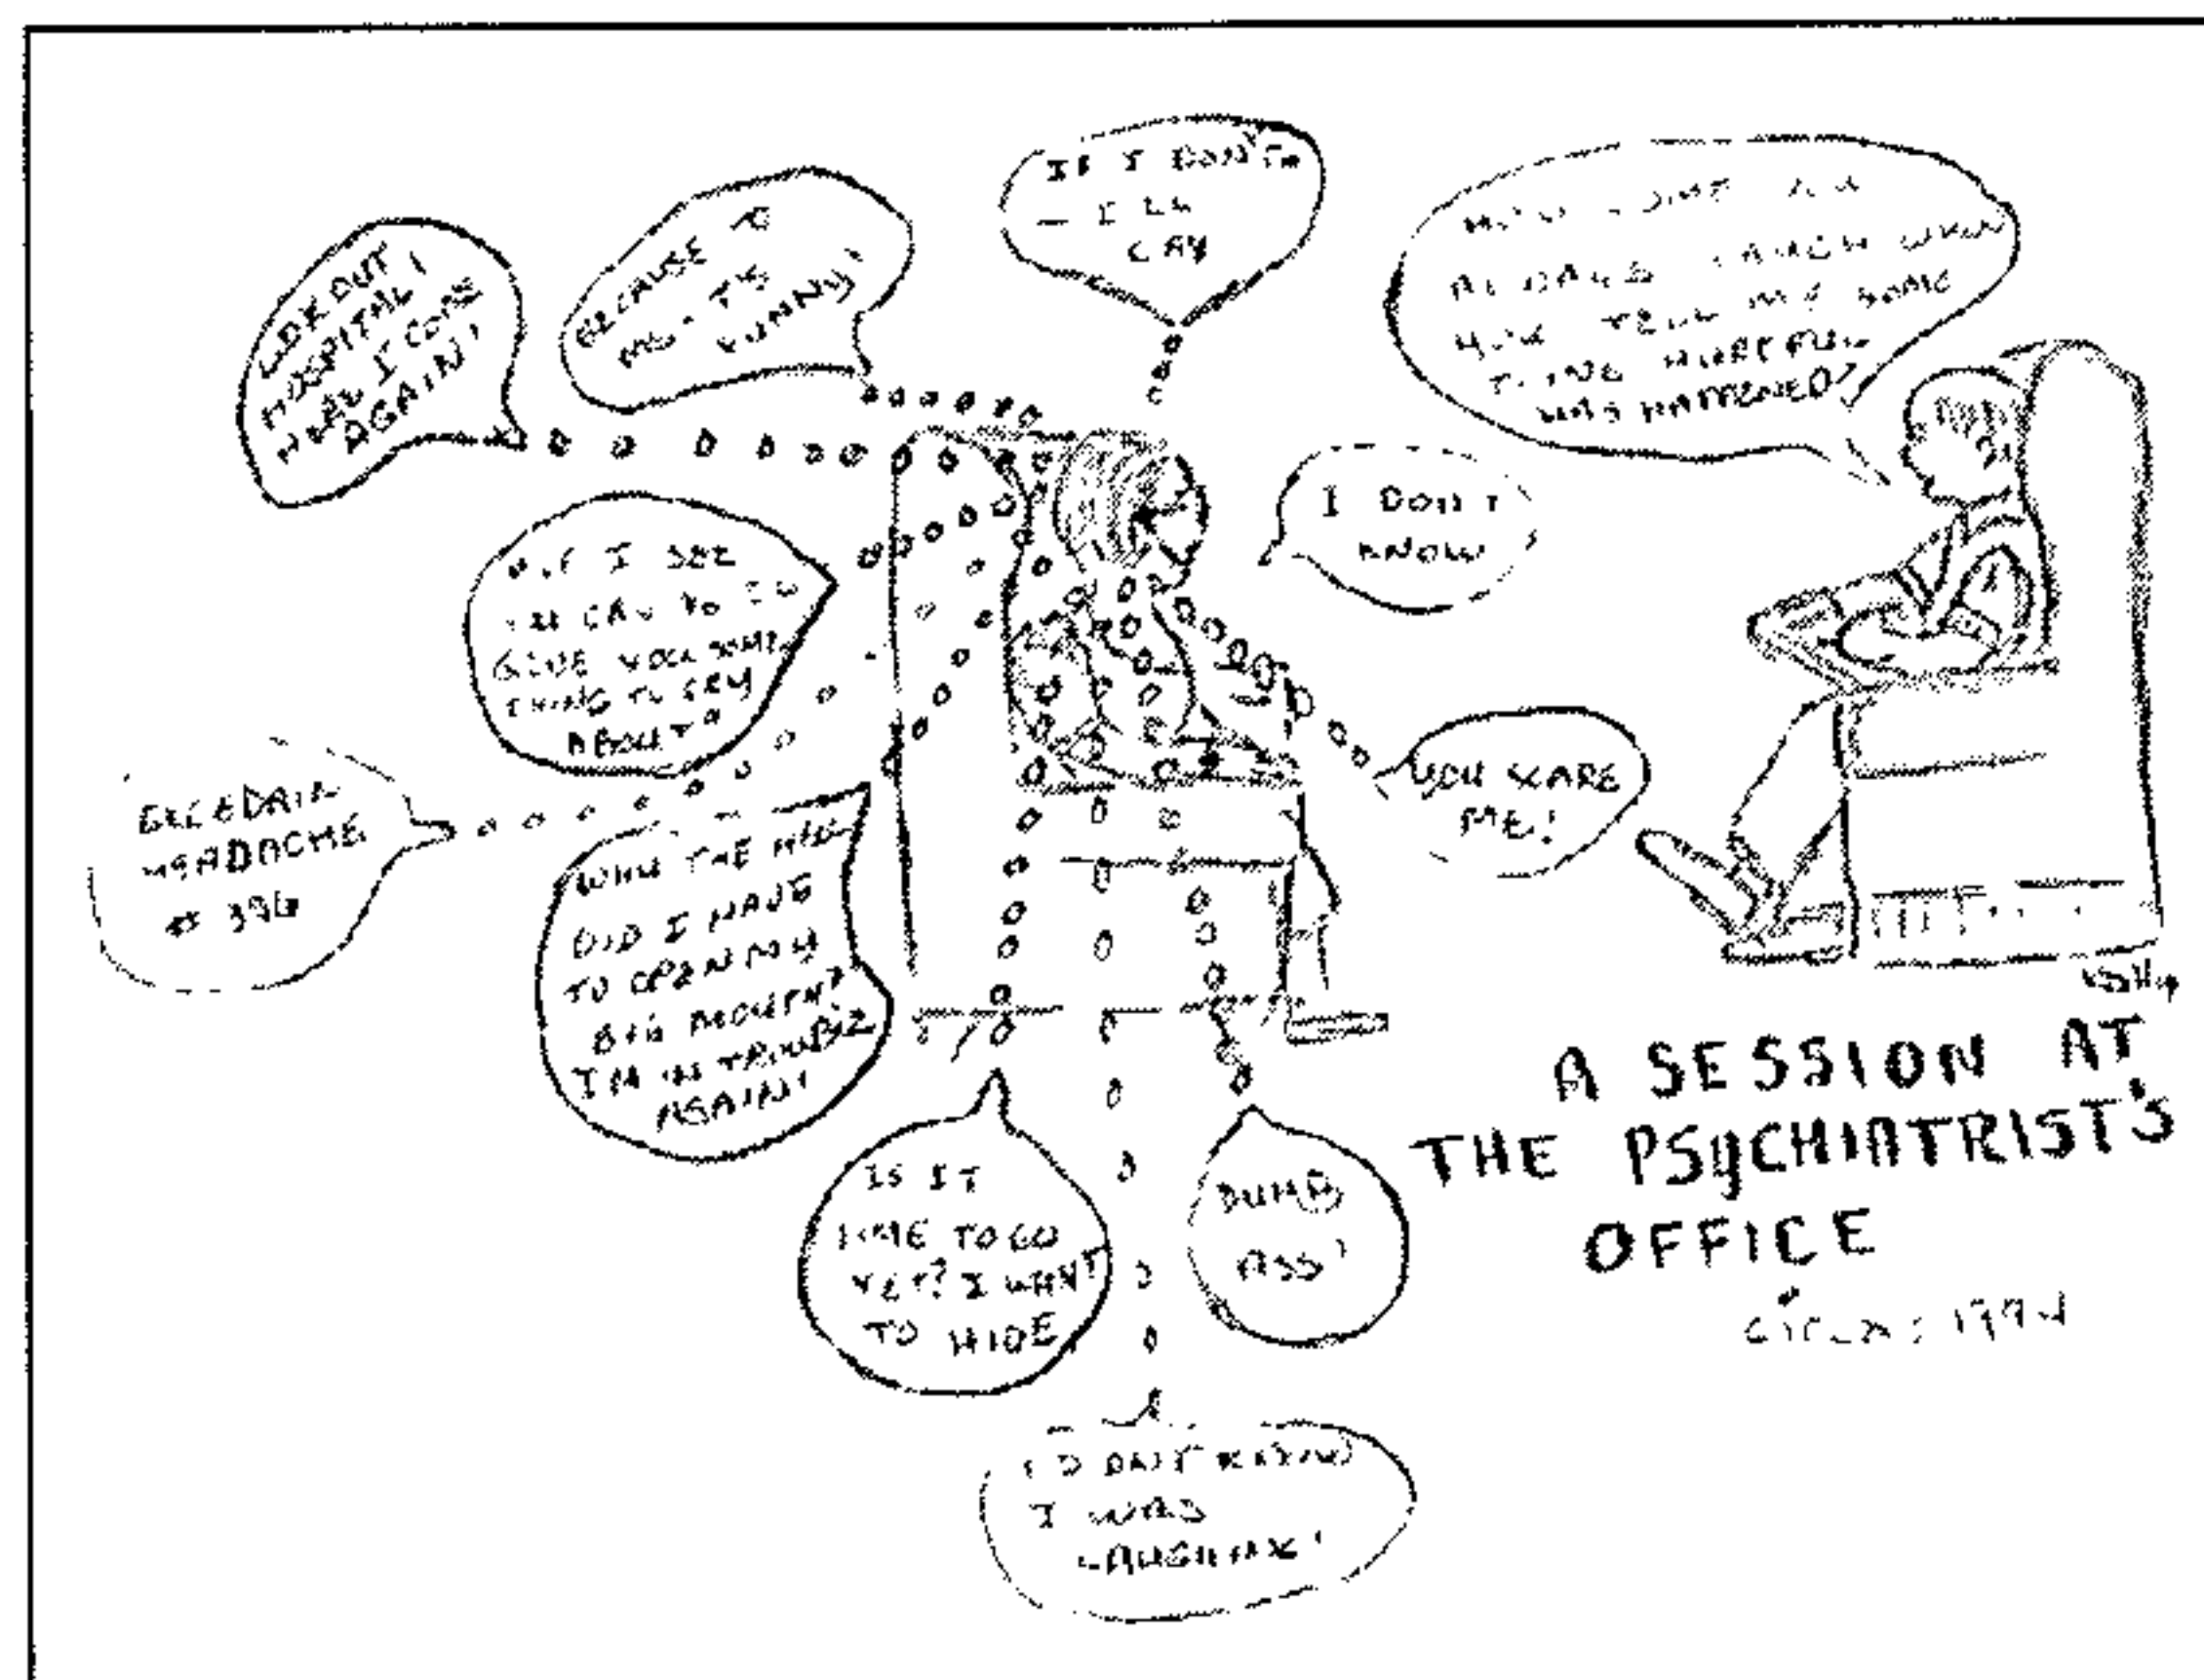 LOOKOUT
HOSPITAL,
HERE I COME
AGAIN!
BECAUSE
FUNNY!
IF I DON'T
I'LL
CRY
HOW COME
ALWAYS LAUGH WHEN
YOU TELL ME SOME
THING HURTFUL
HAS HAPPENED?
I DON'T
KNOW
"IF I SEE
YOU CRY
GIVE YOU SOME
THING TO CRY
ABOUT"
YOU SCARE
ME!
EXCEDRIN
HEADACHE
#
WHY THE HELL
DID I HAVE
TO OPEN MY
BIG MOUTH?
I'M IN TROUBLE
AGAIN!
IS IT
TIME TO GO
YET? I WANT
TO HIDE
DUMB
ASS!
I WAS
LAUGHING!
A SESSION AT
THE PSYCHIATRIST'S
OFFICE